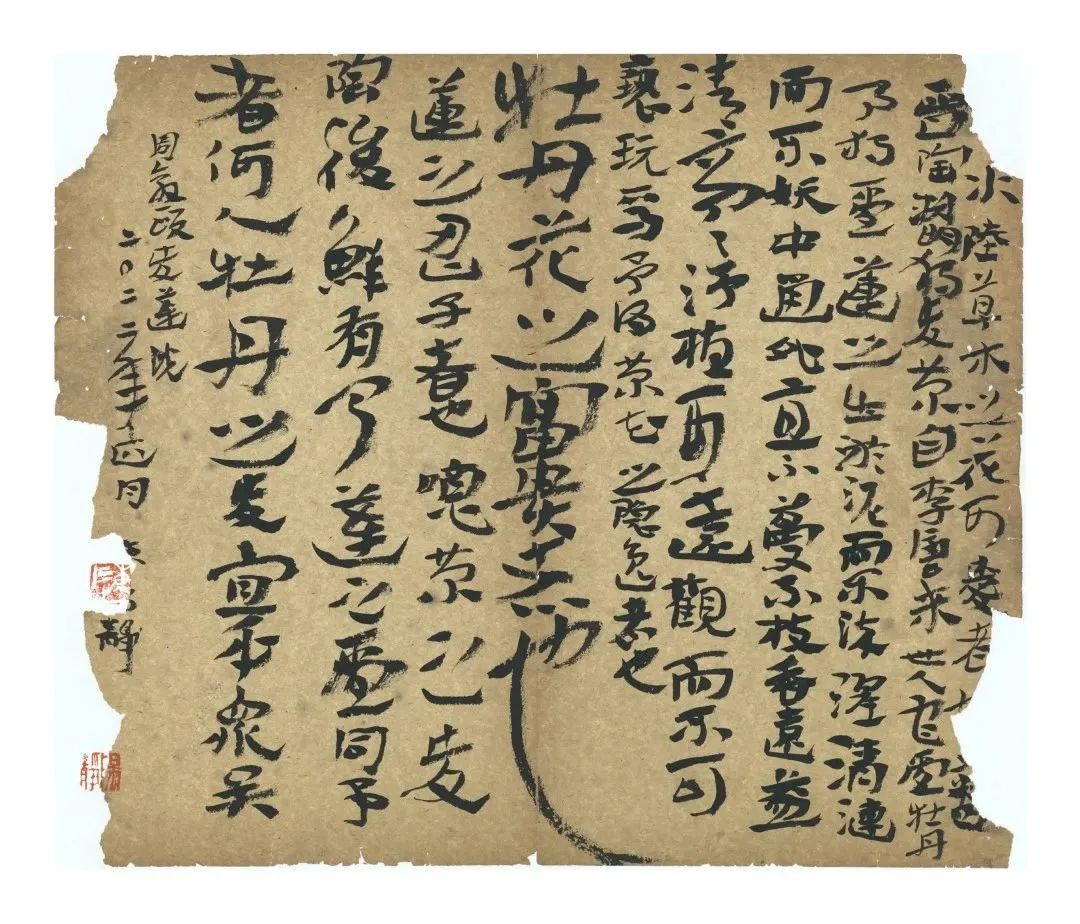 水陸草木之花可愛者
晉陶淵獨愛菊自李唐來世人甚愛牡丹
予獨愛蓮之出於泥而不染濯清漣
而不妖中通外直不蔓不枝香遠益
清亭亭淨植可遠觀而不可
褻玩焉予謂菊花之隱逸者也
牡丹花之富貴者也
蓮之君子者也噫菊之愛
陶後鮮有聞蓮之愛同予
者何人牡丹之愛宜乎眾矣
周敦頤愛蓮說
二〇二二年十月 靜